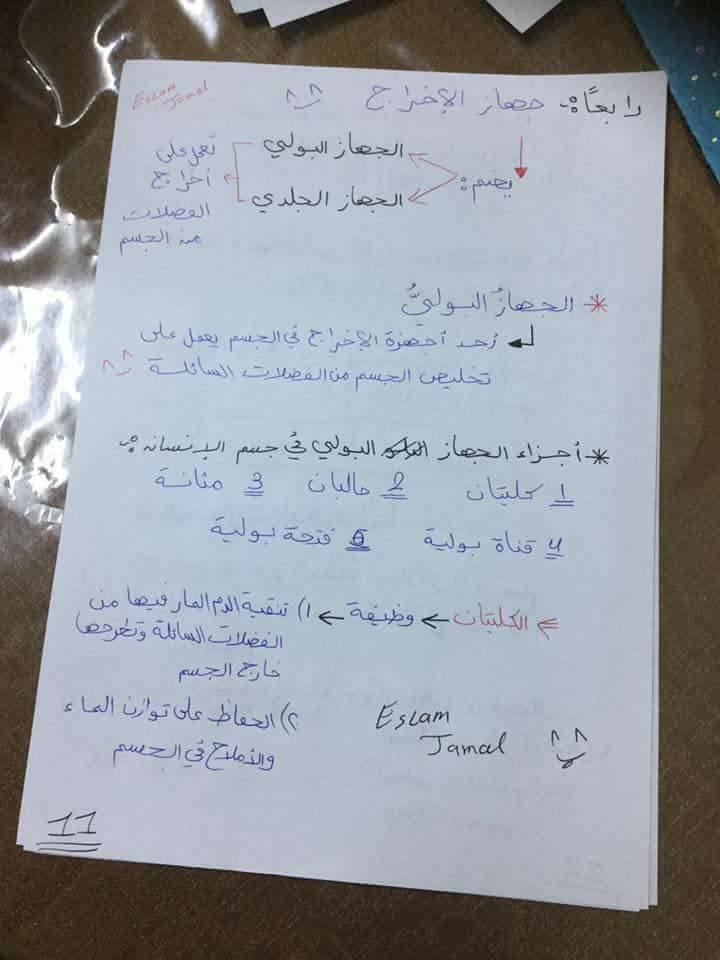 Eslam
Jamal
رابعاً:- جهاز الإخراج ^^
يضم:
الجهاز البولي
الجهاز الجلدي
تعمل على
أخراج
الفضلات
من الجسم
* الجهازُ البوليُّ
أحد أجهزة الإخراج في الجسم يعمل على
تخليص الجسم من الفضلات السائلة ^^
* أجزاء الجهاز البولي في جسم الإنسان:-
1 كليتان 2 حالبان 3 مثانة
4 قناة بولية 5 فتحة بولية
الكليتان ← وظيفة ← ١) تنقية الدم المار فيها من
الفضلات السائلة وتطرحها
خارج الجسم
٢) الحفاظ على توازن الماء
والأملاح في الجسم
Eslam
Jamal ^^
11